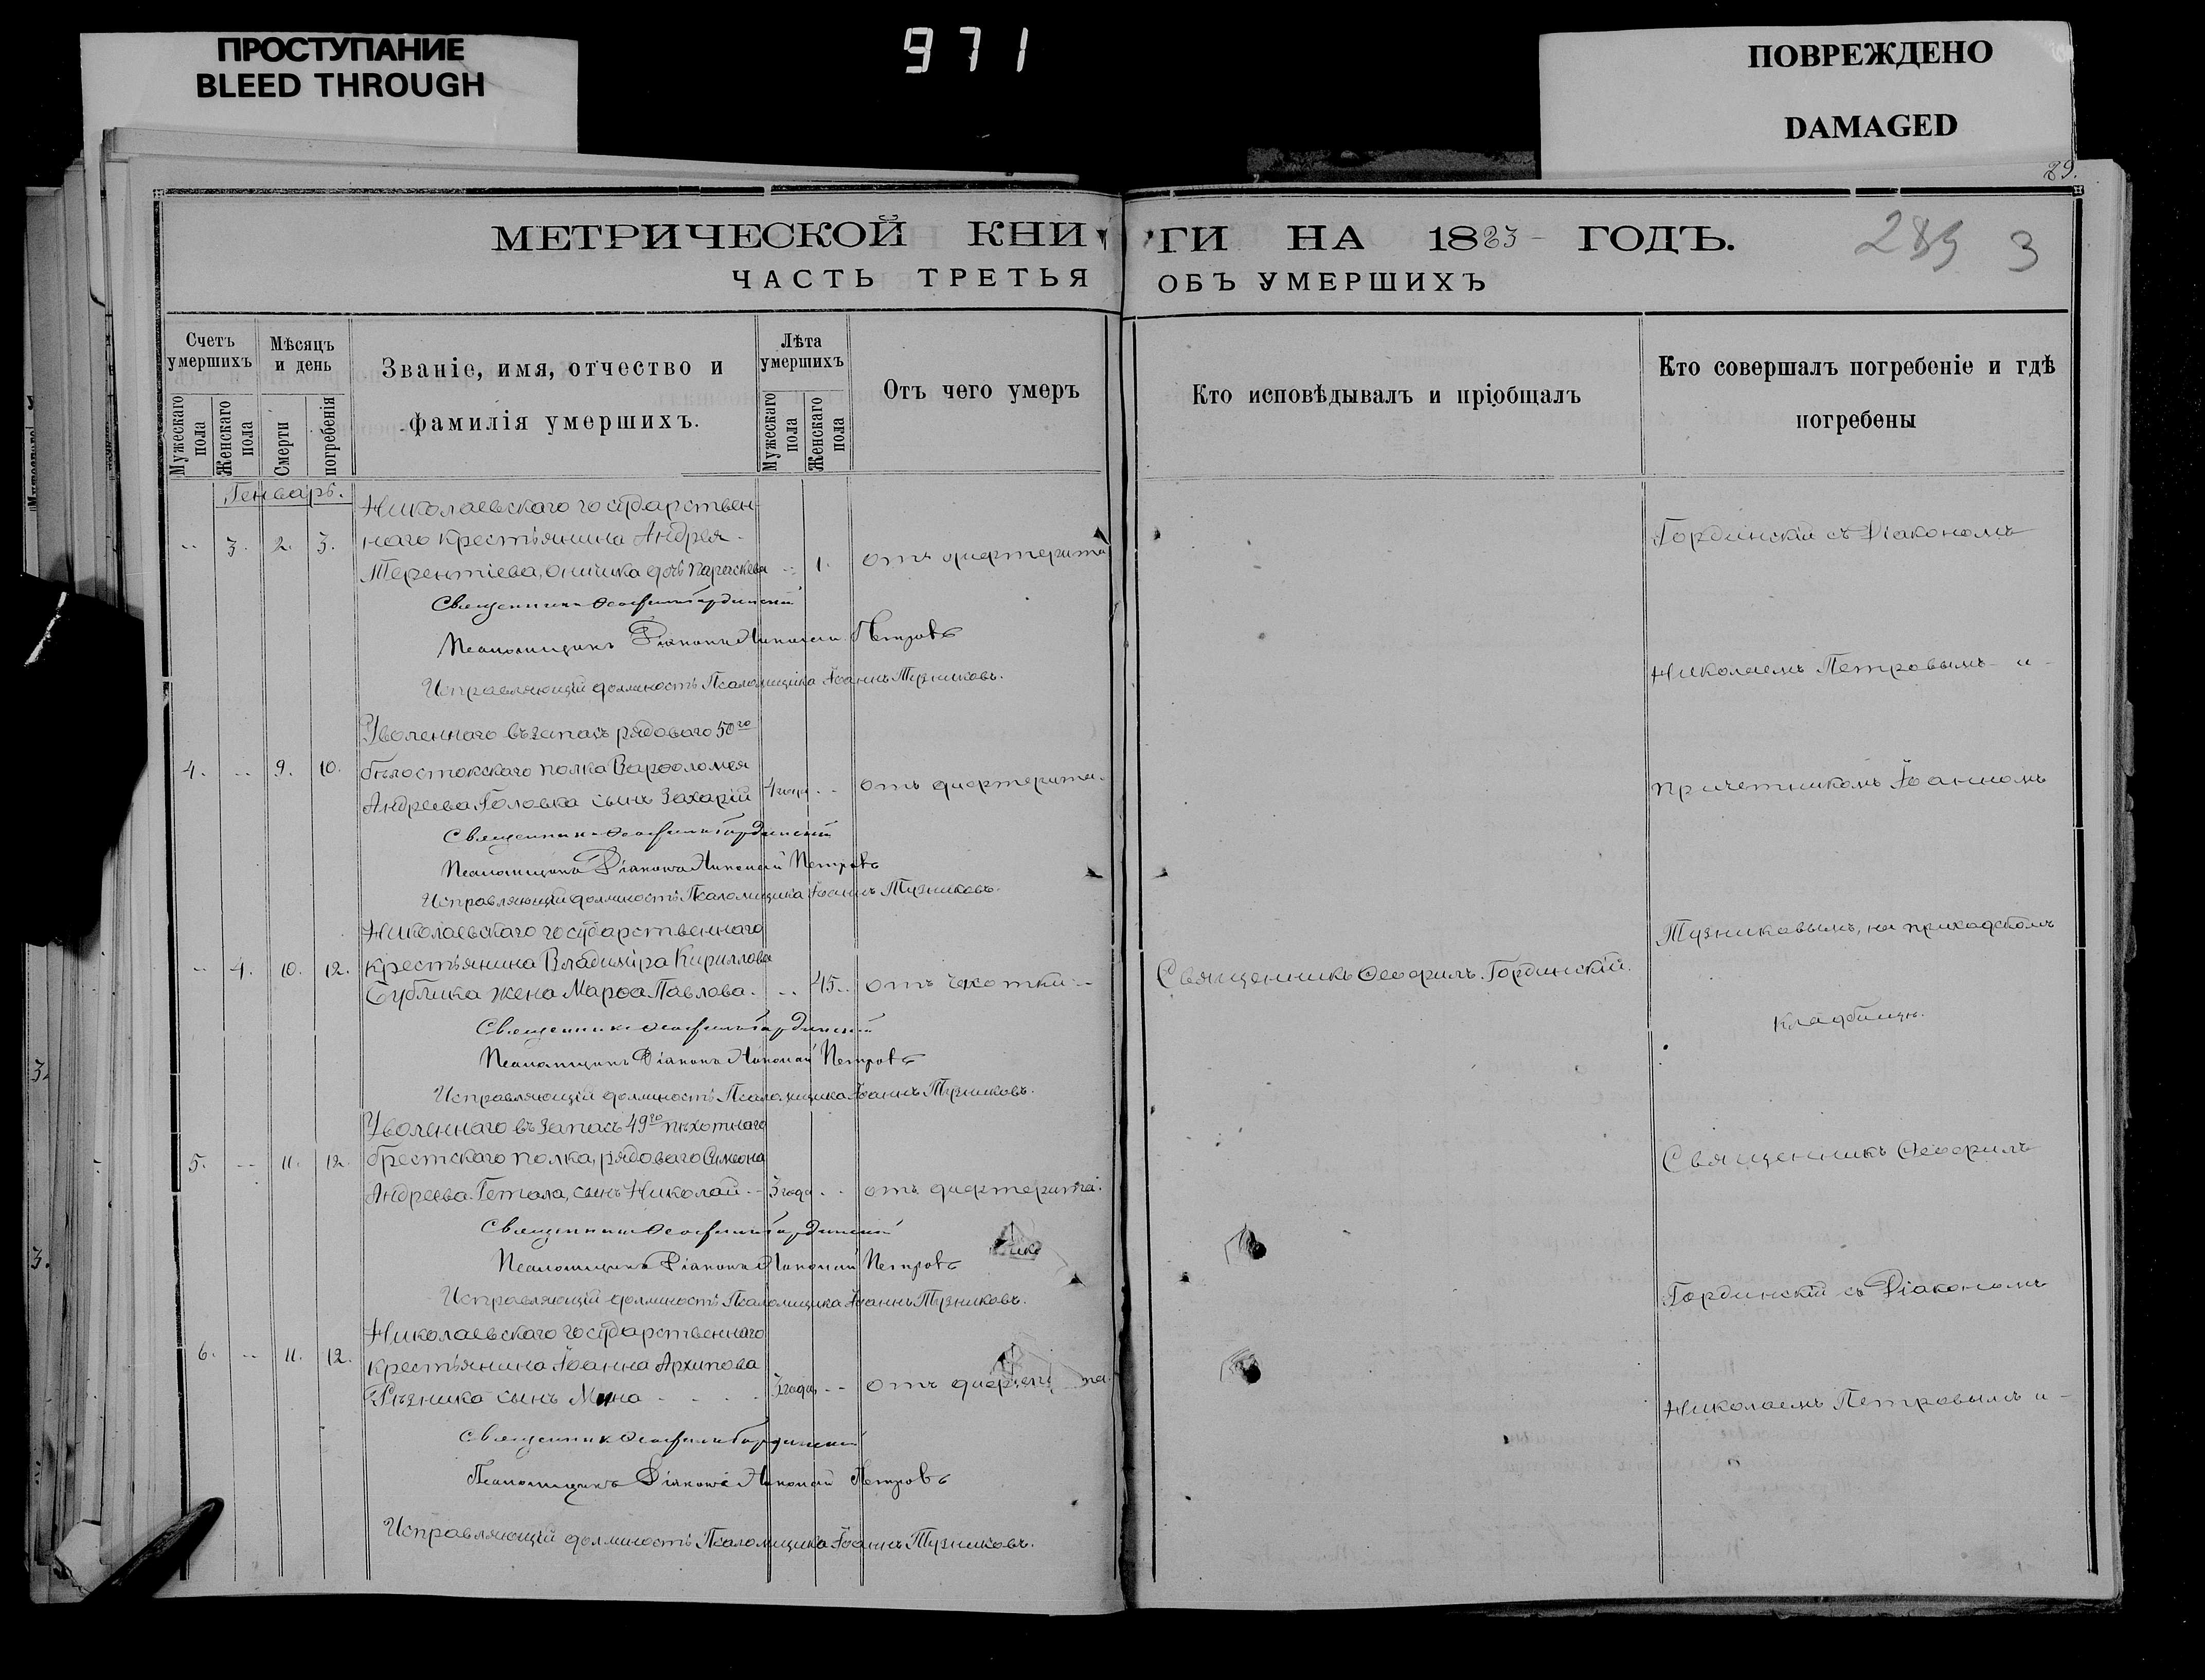 ПРОСТУПАНИЕ
BLEED THROUGH
971
ПОВРЕЖДЕНО
DAMAGED
89.
МЕТРИЧЕСКОЙ КНИГИ НА 1883 ГОДЪ.
289 3
ЧАСТЬ ТРЕТЬЯ ОБЪ УМЕРШИХЪ
Счетъ умершихъ
Мужескаго пола
Женскаго пола
Мѣсяцъ и день
Смерти
погребенія
Званіе, имя, отчество и
фамилія умершихъ.
Лѣта умершихъ
Мужескаго пола
Женскаго пола
Отъ чего умеръ
Кто исповѣдывалъ и пріобщалъ
Кто совершалъ погребеніе и гдѣ
погребены
Генварь.
Николаевскаго государствен-
3. 2. 3. наго крестьянина Андрея
Терентіева, дочь Параскева 1. отъ дифтерита
Священникъ Ѳеофилъ Гординскій
Псаломщикъ Діаконъ Николай Петровъ
Исправляющій должность Псаломщика Іоаннъ Тузниковъ.
Уволеннаго въ запасъ рядоваго 50го
4. 9. 10. бѣлостокскаго полка Варѳоломея
Андреева Головка сынъ Захарій 4 года отъ дифтерита.
Священникъ Ѳеофилъ Гординскій
Псаломщикъ Діаконъ Николай Петровъ
Исправляющій должность Псаломщика Іоаннъ Тузниковъ.
Николаевскаго государственнаго
4. 10. 12. крестьянина Владиміра Кириллова
Бублика жена Марѳа Павлова. 45. отъ чахотки
Священникъ Ѳеофилъ Гординскій
Псаломщикъ Діаконъ Николай Петровъ
Исправляющій должность Псаломщика Іоаннъ Тузниковъ.
Уволеннаго въ запасъ 49го пѣхотнаго
5. 11. 12. брестскаго полка, рядоваго Симеона
Андреева Гетала, сынъ Николай 3 года отъ дифтерита.
Священникъ Ѳеофилъ Гординскій
Псаломщикъ Діаконъ Николай Петровъ
Исправляющій должность Псаломщика Іоаннъ Тузниковъ.
Николаевскаго государственнаго
6. 11. 12. крестьянина Іоанна Архипова
Рѣзника сынъ Мина 3 года отъ
Священникъ Ѳеофилъ Гординскій
Псаломщикъ Діаконъ Николай Петровъ
Исправляющій должность Псаломщика Іоаннъ Тузниковъ.
Священникъ Ѳеофилъ Гординскій.
Гординскій съ Діакономъ
Николаемъ Петровымъ и
причетникомъ Іоанномъ
Тузниковымъ, на приходскомъ
кладбищѣ.
Священникъ Ѳеофилъ
Гординскій съ Діакономъ
Николаемъ Петровымъ и